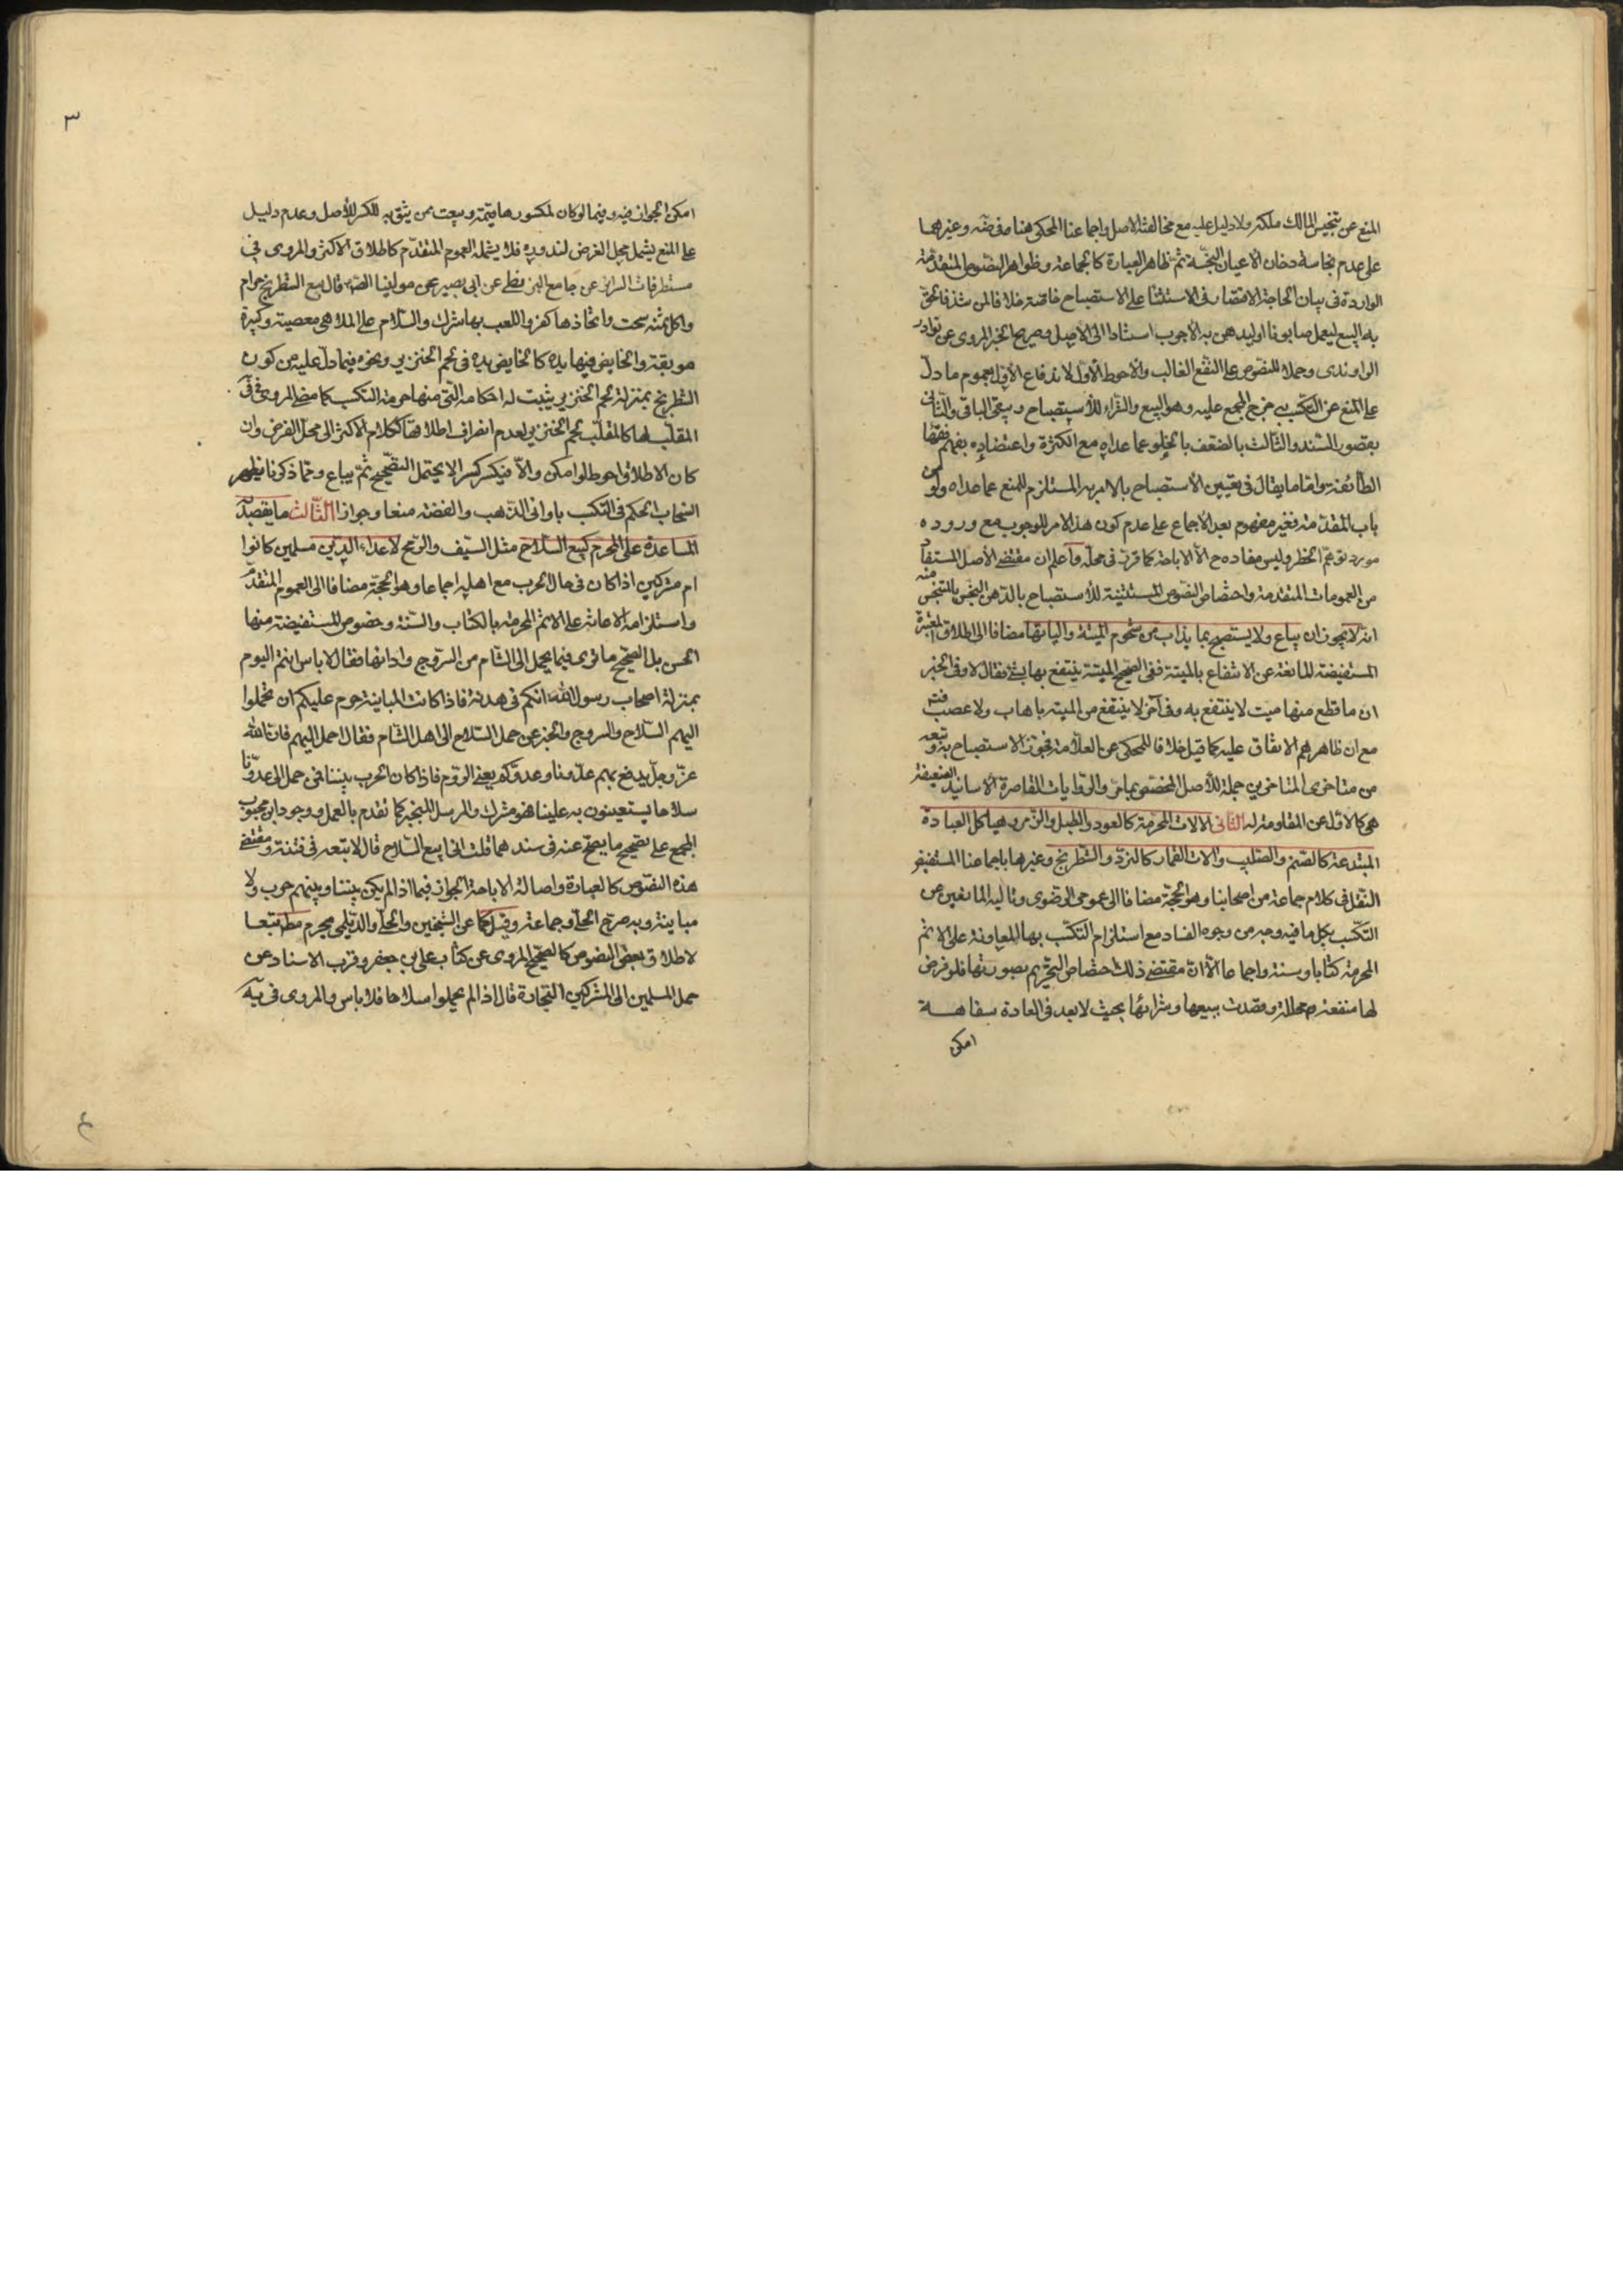 المنع عن تنجيس المالك ملكه ولا دليل عليه مع مخالفته الاصل واجماعنا المحكي هنا وغيرهما
على عدم نجاسة دخان الاعيان النجسة ثم ظاهر العبارة كالجماعة وظواهر النصوص المتقدمة
الواردة في بيان الحاجة الاقتصار في الاستثناء على الاستصباح خاصة خلافا لمن شذ فالحق
به البيع ليعمل صابونا او ليدهن به الاجرب استنادا الى الاصل وصريح الخبر المروي عن نوادر
الراوندي وحملا للنصوص على النفع الغالب والاحوط الاول لاندفاع الاول بعموم ما دل
على المنع عن التكسب به خرج المجمع عليه وهو البيع والشراء للاستصباح وبقي الباقي والثاني
بقصور السند والثالث بالضعف بالخلو عما عداه مع الكثرة واعتضاده بفهم فقهاء
الطائفة واما ما يقال في تعيين الاستصباح بالامر به المستلزم للمنع عما عداه ولو من
باب المقدمة فغير مفهوم بعد الاجماع على عدم كون هذا الامر للوجوب مع وروده
مورد توهم الحظر وليس مفاده ح الا الاباحة كما قرر في محله واعلم ان مقتضى الاصل المستفاد
من العمومات المتقدمة واختصاص النصوص المستثنية للاستصباح بالدهن النجس بالمتنجس منه
انه لا يجوز ان يباع ولا يستصبح بما يذاب من شحوم الميتة والياتها مضافا الى اطلاق المعتبرة
المستفيضة المانعة عن الانتفاع بالميتة ففي الصحيح الميتة ينتفع بها بشئ فقال لا وفي الخبر
ان ما قطع منها ميت لا ينتفع به وفي آخر لا ينتفع من الميتة باهاب ولا عصب
مع ان ظاهرهم الاتفاق عليه كما قيل خلافا للمحكي عن العلامة فجوز الاستصباح به وتبعه
من متاخري المتاخرين جملة للاصل المخصص بما مر والروايات القاصرة الاسانيد الضعيفة
هي كالاول عن المقاومة له الثاني الالات المحرمة كالعود والطبل والزمر وهياكل العبادة
المبتدعة كالصنم والصليب والات القمار كالنرد والشطرنج وغيرها باجماعنا المستفيض
النقل في كلام جماعة من اصحابنا وهو الحجة مضافا الى عموم الرضوي وتاليه المانعين عن
التكسب بكل ما فيه وجه من وجوه الفساد مع استلزام التكسب بها للمعاونة على الاثم
المحرمة كتابا وسنة واجماعا الا ان مقتضى ذلك اختصاص التحريم بصورتها فلو فرض
لها منفعة محللة وقصدت ببيعها وشرائها بحيث لا يعد في العادة سفاهة
امكن
٣
امكن الجواز فيه وفيما لو كان لمكسورها قيمة وبيعت ممن يثق به للكسر للاصل وعدم دليل
على المنع يشمل محل الفرض لندوره فلا يشمله العموم المتقدم كاطلاق الاكثر والمروي في
مستطرفات السرائر عن جامع البزنطي عن ابي بصير عن مولينا الصادق قال بيع الشطرنج حرام
واكل ثمنه سحت واتخاذها كفر واللعب بها شرك والسلام على الملاهي معصية وكبيرة
موبقة والخايض فيها يده كالخايض يده في لحم الخنزير ونحوه فيما دل عليه من كون
الشطرنج بمنزلة لحم الخنزير يثبت له احكامه التي منها حرمة التكسب كما مضى المروي في
المقلب لها كالمقلب لحم الخنزير لعدم انصراف اطلاقها ككلام الاكثر الى محل الفرض وان
كان الاطلاق احوط لو امكن والا فيكسر كسرا لا يحتمل التصحيح ثم يباع ومما ذكرنا يظهر
انسحاب الحكم في التكسب باواني الذهب والفضة منعا وجوازا الثالث ما يقصد به
المساعدة على المحرم كبيع السلاح مثل السيف والرمح لاعداء الدين مسلمين كانوا
ام مشركين اذا كان في حال الحرب مع اهله اجماعا وهو الحجة مضافا الى العموم المتقدم
واستلزامه الاعانة على الاثم المحرمة بالكتاب والسنة وخصوص المستفيضة منها
الحسن بل الصحيح ما ترى فيما يحمل الى الشام من السروج واداتها فقال لا باس انتم اليوم
بمنزلة اصحاب رسول الله انكم في هدنة فاذا كانت المباينة حرم عليكم ان تحملوا
اليهم السلاح والسروج والخبر عن حمل السلاح الى اهل الشام فقال احمل اليهم فان الله
عز وجل يدفع بهم عدونا وعدوكم يعني الروم فاذا كان الحرب بيننا فمن حمل الى عدونا
سلاحا يستعينون به علينا فهو مشرك والمرسل المنجبر كما تقدم بالعمل ووجود ابن محبوب
المجمع على تصحيح ما يصح عنه في سندهما قلت اني ابيع السلاح قال لا تبعه في فتنة ومقتضى
هذه النصوص كالعبارة واصالة الاباحة الجواز فيما اذا لم يكن بيننا وبينهم حرب ولا
مباينة وبه صرح الحلي وجماعة وقيل كما عن الشيخين والحلي والديلمي يحرم مط تبعا
لاطلاق بعض النصوص كالصحيح المروي عن كتاب علي بن جعفر وقرب الاسناد عن
حمل المسلمين الى المشركين التجارة قال اذا لم يحملوا سلاحا فلا باس والمروي في يه